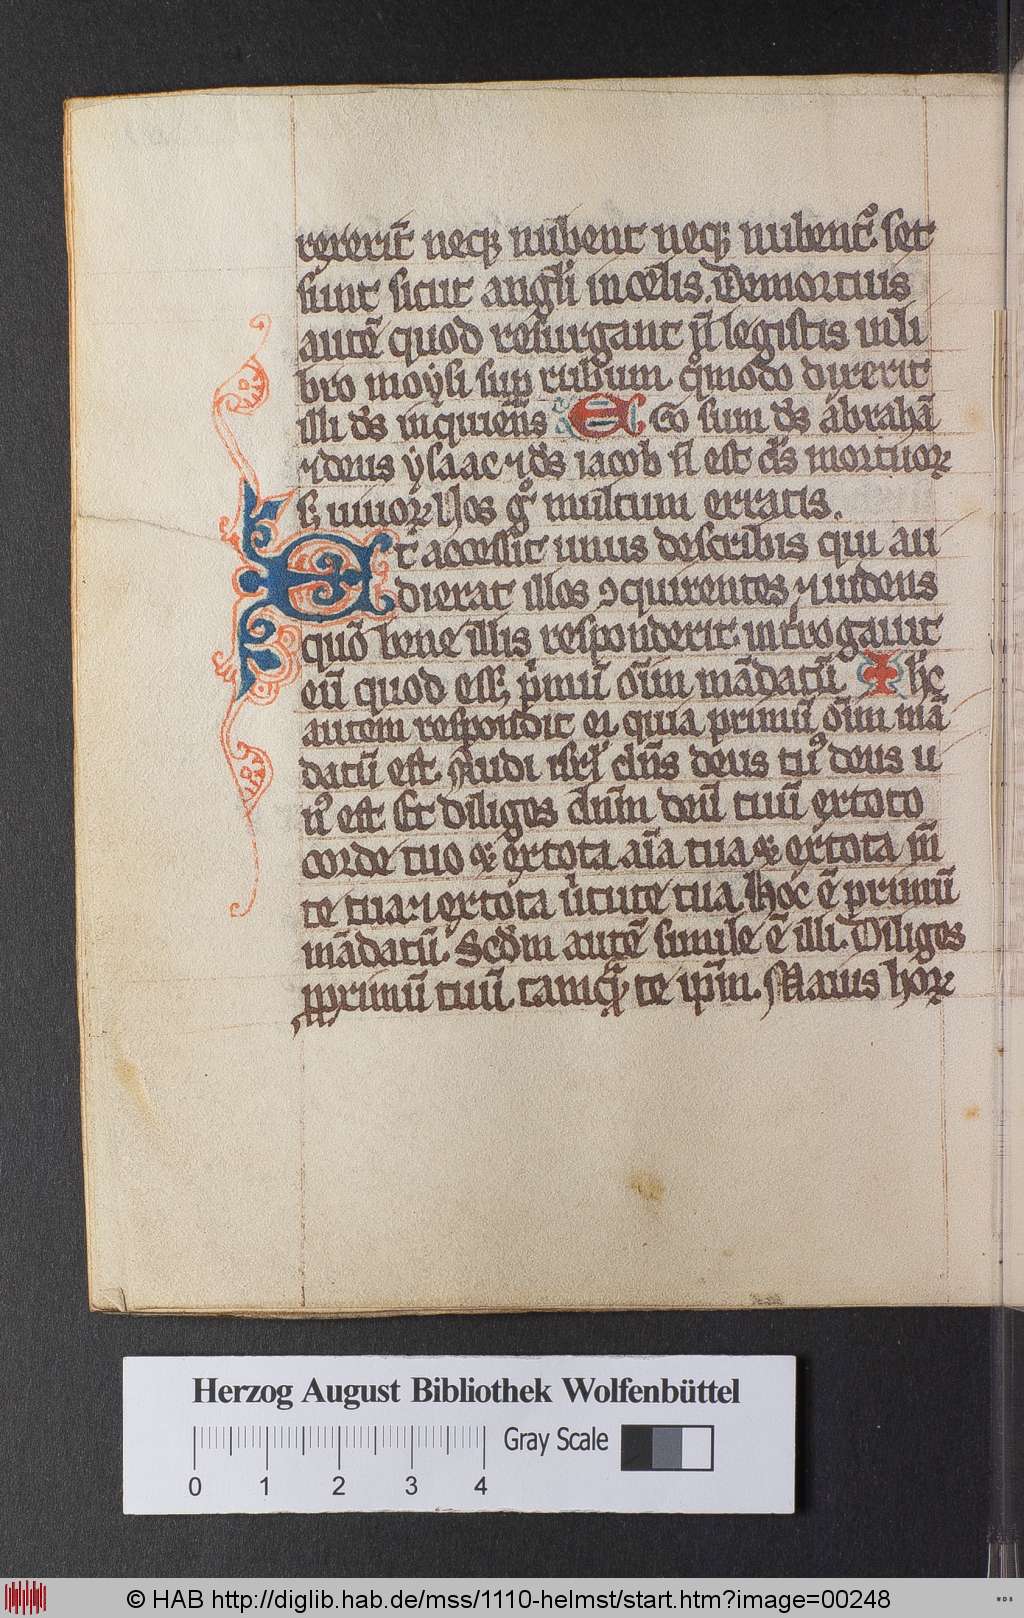 rexerĩt neqꝫ nubent neqꝫ nubent᷑. set
sunt sicut angl̃i in celis. De mortuis
autẽ quod resurgant ñ legistis in li
bro moysi sup rubum. qͦmodo dixerit
illi d̃s inquiens Ego sum d̃s abrahã
⁊ deus ysaac ⁊ d̃s iacob ñ est d̃s mortuoꝝ
sꝫ uiuoꝝ Uos gͦ multum erratis.
Et accessit unus de scribis qui au
dierat illos ꝯquirentes ⁊ uidens
quõ bene illis responderit. introgauit
eũ quod essꝫ pͥmũ oĩm mãdatũ Ih̃c
autem respondit ei. quia primũ oĩm mã
datũ est. Audi isrl̃ dñs deus tuꝰ deus u
nꝰ est Et diliges dñm deũ tuũ ex toto
corde tuo ⁊ ex tota aĩa tua ⁊ ex tota m̃
te tua. ⁊ ex tota uͥtute tua Hoc ẽ primũ
mãdatũ. Scd̃m autẽ simile ẽ illi. Diliges
ꝓximũ tuũ tamqͣ te ip̃m. Maius hoꝝ
Herzog August Bibliothek Wolfenbüttel
Gray Scale
0 1 2 3 4
© HAB http://diglib.hab.de/mss/1110-helmst/start.htm?image=00248